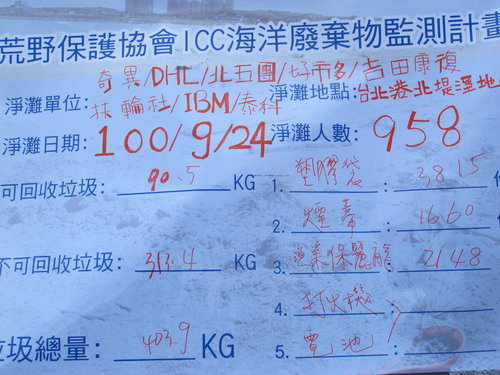 荒野保護協會ICC海洋廢棄物監測計畫
奇異/DHL/北五團/好市多/吉田康復
淨灘單位: 扶輪社/IBM/泰科 淨灘地點: 台北港北堤溼地
淨灘日期: 100/9/24 淨灘人數: 958
可回收垃圾: 90.5 KG 1. 塑膠袋: 3815
2. 煙蒂: 1660
不可回收垃圾: 313.4 KG 3. 漁業保麗龍: 2148
4. 打火機:
垃圾總量: 403.9 KG 5. 電池: